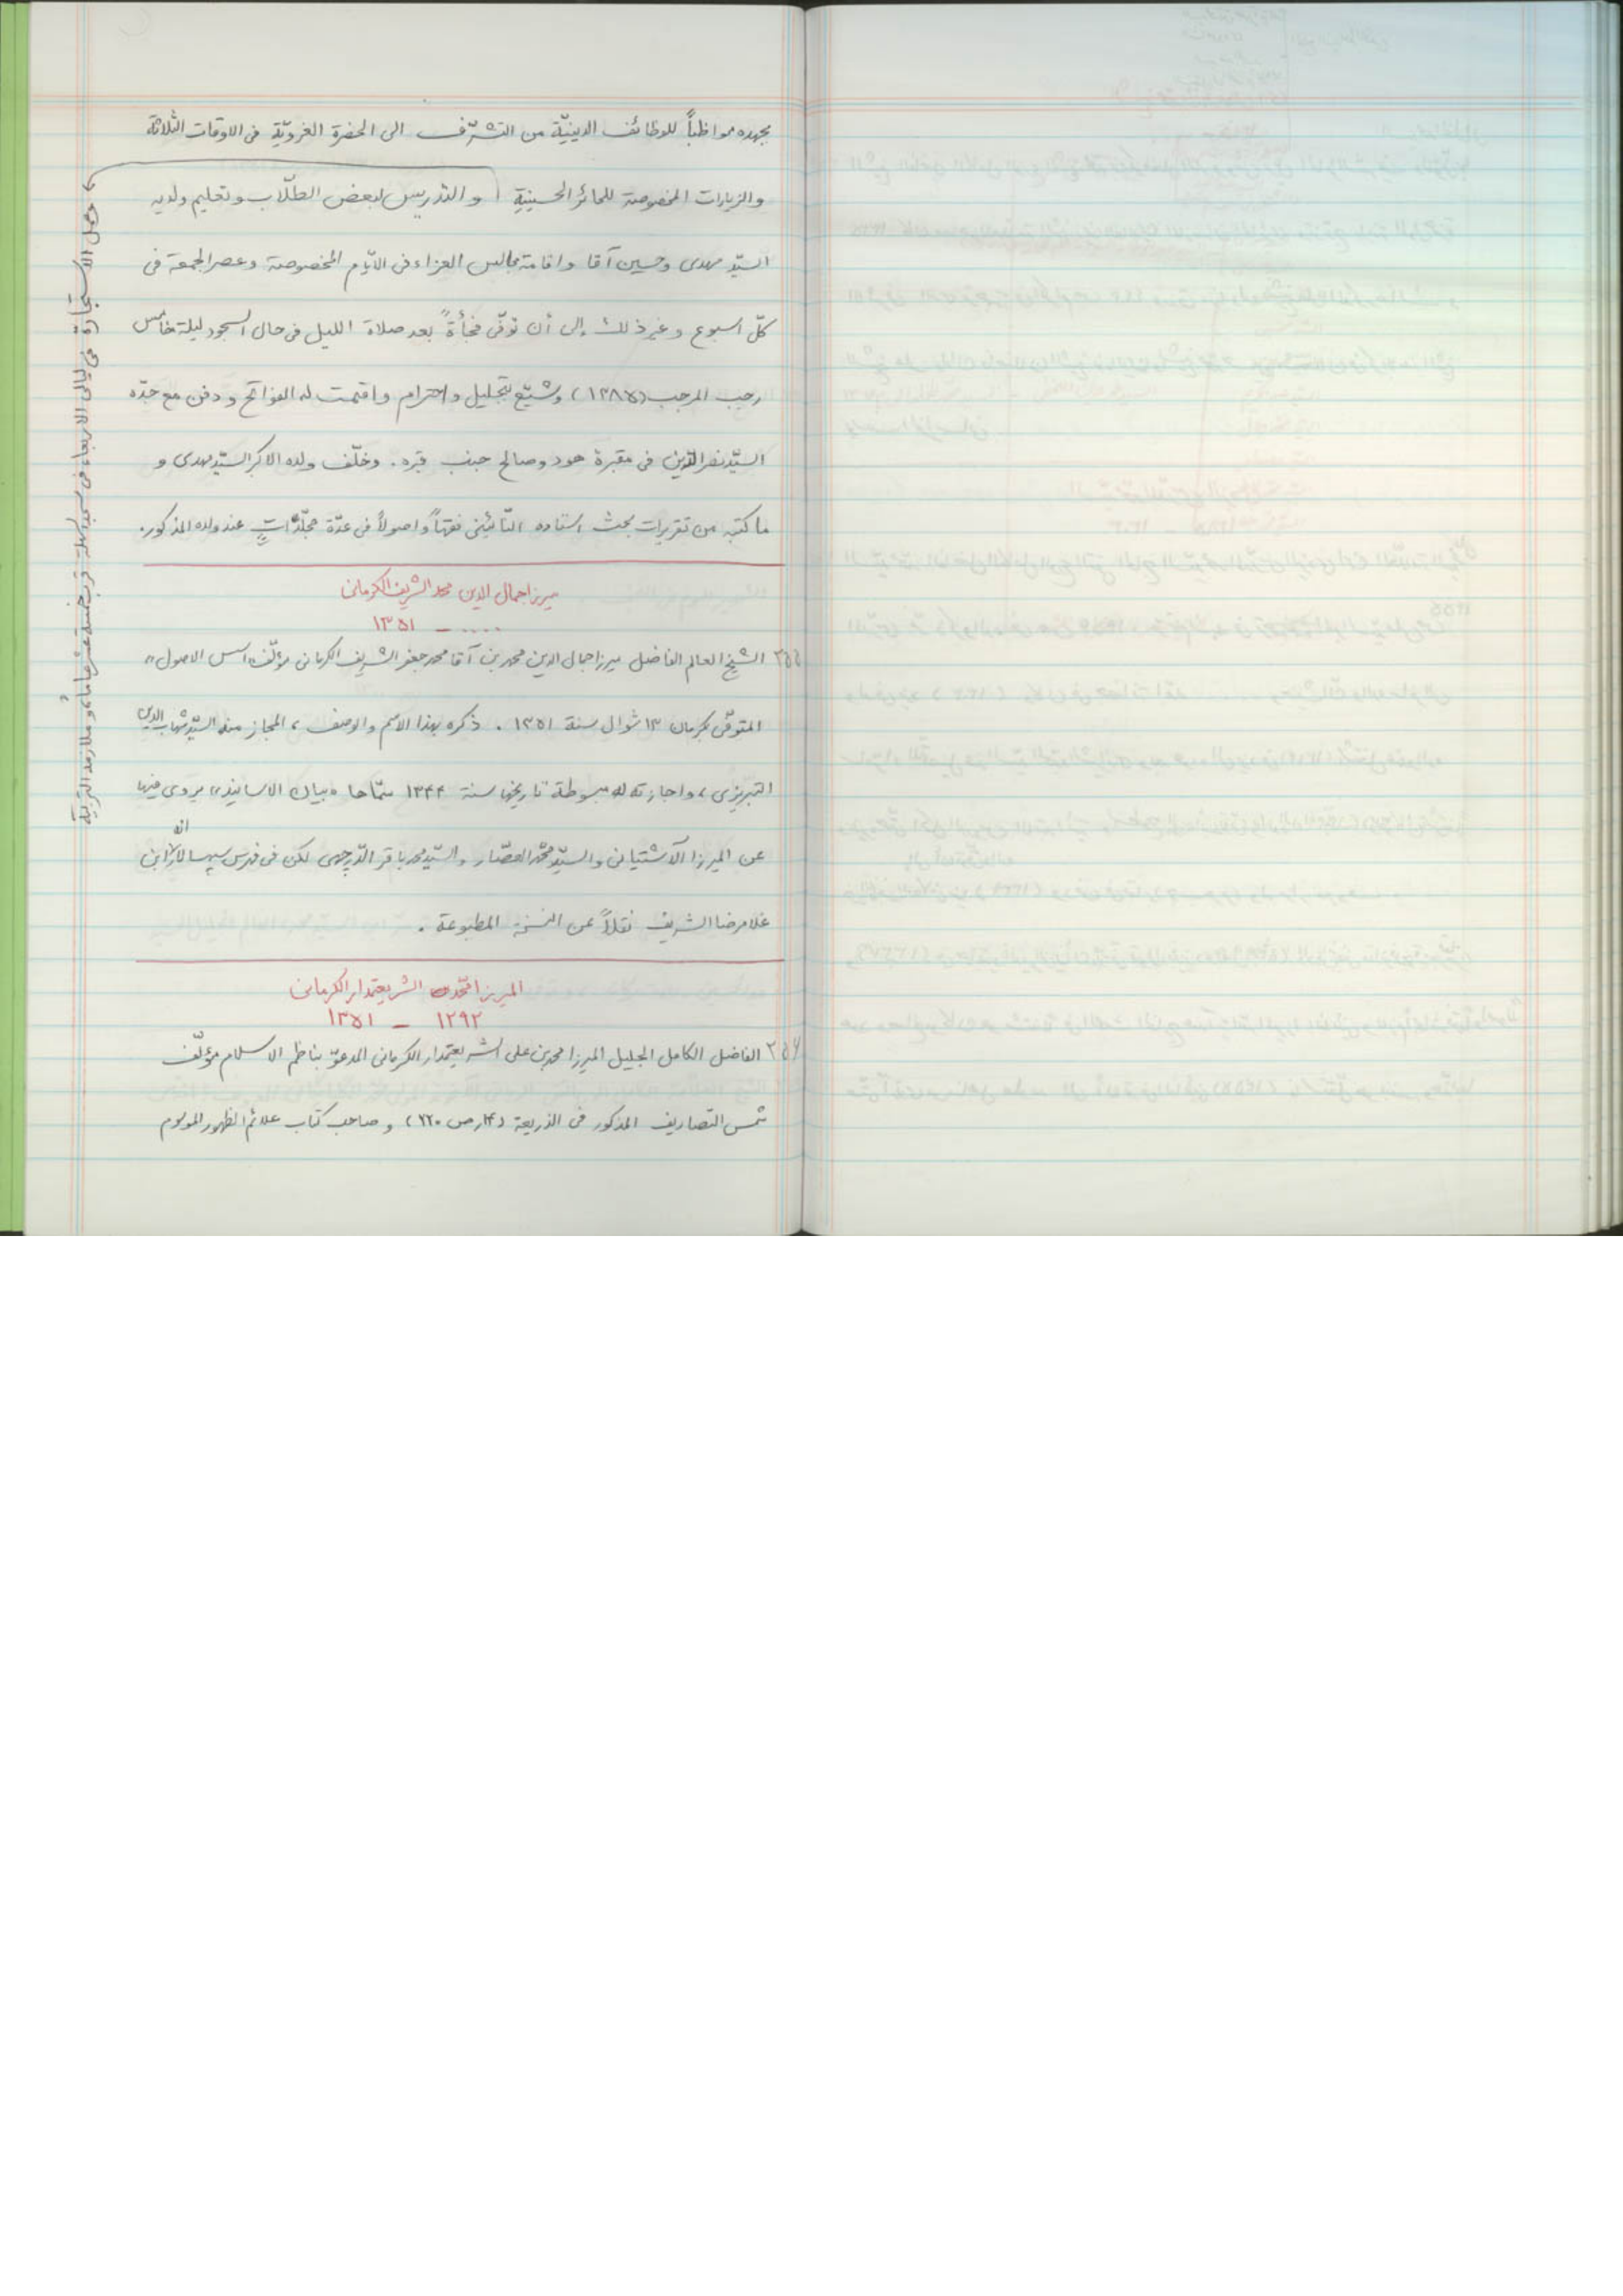 بجهده مواظباً للوظائف الدينيّة من التشرّف الى الحضرة الغرويّة فى الاوقات الثلاثة
والزيارات المخصوصة للحائر الحسينية والتدريس لبعض الطلّاب وتعليم ولديه
السيّد مهدى وحسين آقا واقامة مجالس العزاء فى الايّام المخصوصة وعصر الجمعة فى
كلّ اسبوع وغير ذلك إلى أن توفّى فجأةً بعد صلاة الليل فى حال السجود ليلة خامس
رجب المرجب (١٣٨٥) وشيّع بتجليل واحترام واقيمت له الفواتح ودفن مع جدّه
السيّد نصر الدّين فى مقبرة هود وصالح جنب قبره. وخلّف ولده الاكبر السيّد مهدى و
ما كتبه من تقريرات بحث استاده النّائينى فقهاً واصولاً فى عدّة مجلّدات عند ولده المذكور.
ميرزا جمال الدين محمد الشريف الكرمانى
.... ــ ١٣٥١
٣٥٥ الشيخ العالم الفاضل ميرزا جمال الدين محمد بن آقا محمد جعفر الشريف الكرمانى مؤلّف «اسس الاصول»
المتوفّى بكرمان ١٣ شوال سنة ١٣٥١ . ذكره بهذا الاسم والوصف ، المجاز منه السيّد شهاب الدين
التبريزى ، واجازته له مبسوطة تاريخها سنة ١٣٤٤ سمّاها «بيان الاسانيد» يروى فيها
عن الميرزا الآشتيانى والسيّد محمّد العصّار والسيّد محمد باقر الدّرچهى لكن فى فهرس سپهسالار انه ابن
غلامرضا الشريف نقلاً عن النسخة المطبوعة .
الميرزا محمّد الشريعتمدار الكرمانى
١٢٩٢ ــ ١٣٥١
٣٥٦ الفاضل الكامل الجليل الميرزا محمد بن على الشريعتمدار الكرمانى المدعوّ بناظم الاسلام مؤلّف
شمس التصاريف المذكور فى الذريعة (١٤ر ص ٢٢٠) و صاحب كتاب علائم الظهور الموسوم
وعمل الاستجارة فى ليالى الاربعاء فى مسجد السهلة قرب خمسة عشر عاماً، وملازمة التربة